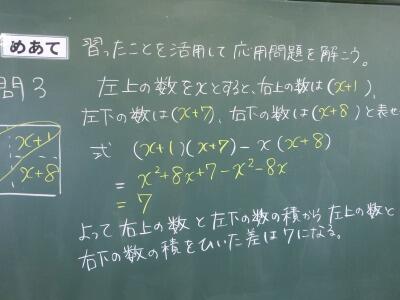 めあて 習ったことを活用して応用問題を解こう。
問3 左上の数をxとすると、右上の数は(x+1)、
左下の数は(x+7)、右下の数は(x+8)と表せ
x+1
x+8
式 (x+1)(x+7)-x(x+8)
= x²+8x+7-x²-8x
= 7
よって右上の数と左下の数の積から左上の数と
右下の数の積をひいた差は7になる。